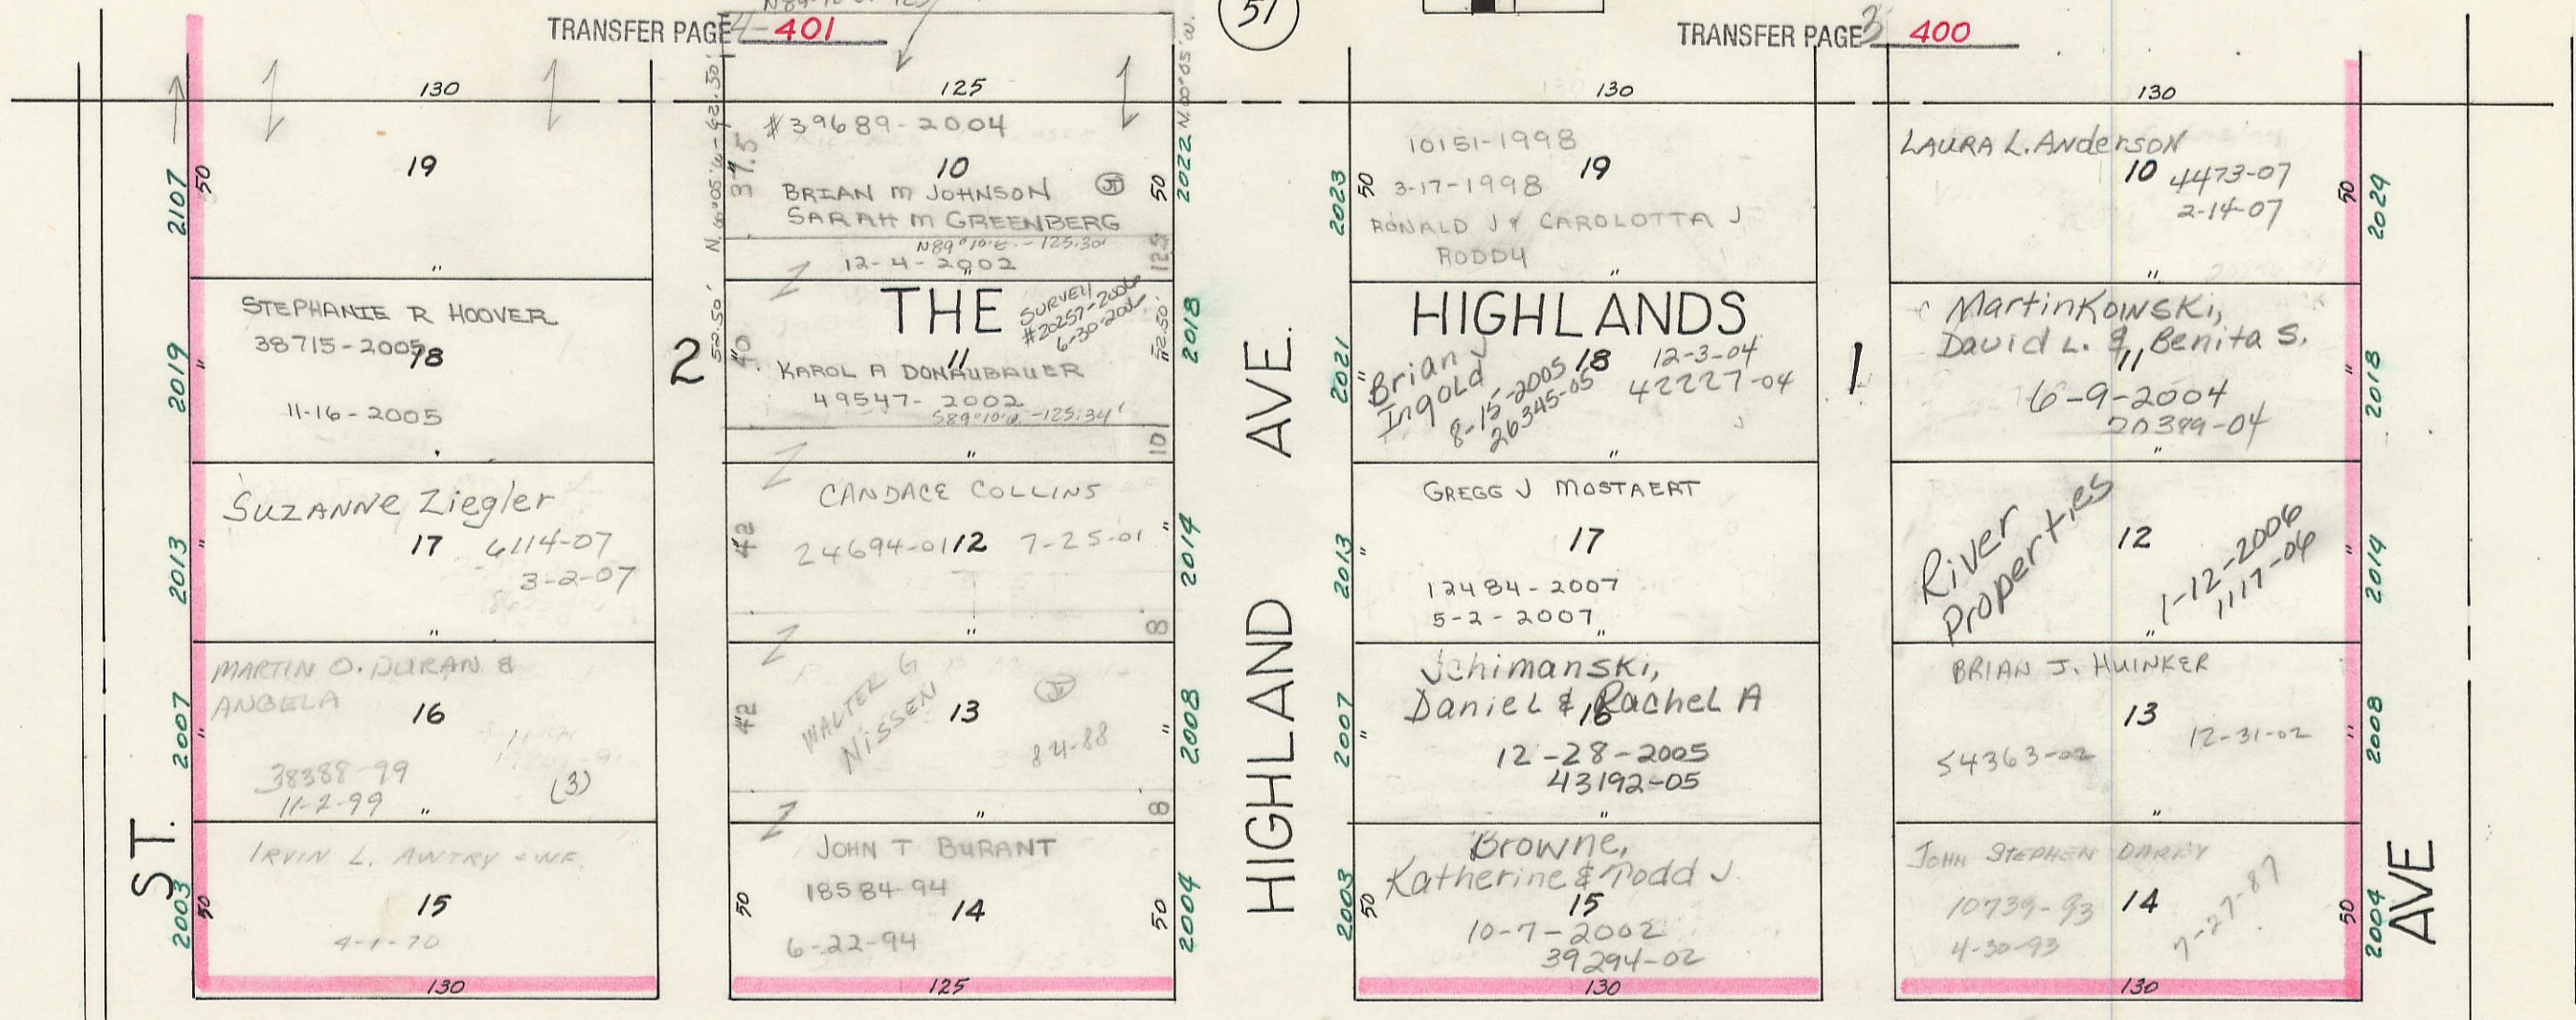 TRANSFER PAGE 401
51
TRANSFER PAGE 400
130
125
130
130
2107
50
19
"
N.00°05'W-62.50'
37.5
#39689-2004
10
BRIAN M JOHNSON
JT
SARAH M GREENBERG
N89°10'E. - 125.30'
12-4-2002
"
12.5
50
2022
N.00°05'W.
2023
50
10151-1998
19
3-17-1998
RONALD J & CAROLOTTA J
RODDY
"
LAURA L. Anderson
10
4473-07
2-14-07
"
50
2024
2019
"
STEPHANIE R HOOVER
38715-2005
18
11-16-2005
2
52.50'
40
THE
SURVEY
#20257-2006
6-30-2006
11
KAROL A DONAUBAUER
49547-2002
S89°10'W -125.34'
10
"
52.50'
2018
2021
"
HIGHLANDS
Brian J
Ingold
8-15-2005
26345-05
18
12-3-04
42227-04
"
1
Martinkowski,
David L. & Benita S.
11
6-9-2004
20389-04
"
"
2018
2013
"
SUZANNE Ziegler
17
6114-07
3-2-07
"
42
CANDACE COLLINS
24694-01
12
7-25-01
"
8
"
2014
2013
"
GREGG J MOSTAERT
17
12484-2007
5-2-2007
"
River
Properties
12
1-12-2006
1117-06
"
"
2014
2007
"
MARTIN O. DURAN &
ANGELA
16
38388-99
11-2-99
(3)
"
42
WALTER G
NISSEN
13
JT
84-88
"
8
"
2008
2007
"
Schimanski,
Daniel & Rachel A
16
12-28-2005
43192-05
"
BRIAN J. HUINKER
13
54363-02
12-31-02
"
"
2008
ST.
2003
50
IRVIN L. AWTRY & WF.
15
4-1-70
130
50
JOHN T BURANT
18584-94
14
6-22-94
50
125
2004
HIGHLAND AVE.
2003
50
Browne,
Katherine & Todd J.
15
10-7-2002
39294-02
130
JOHN STEPHEN DARBY
10739-93
14
4-30-93
7-27-87
50
130
2004
AVE